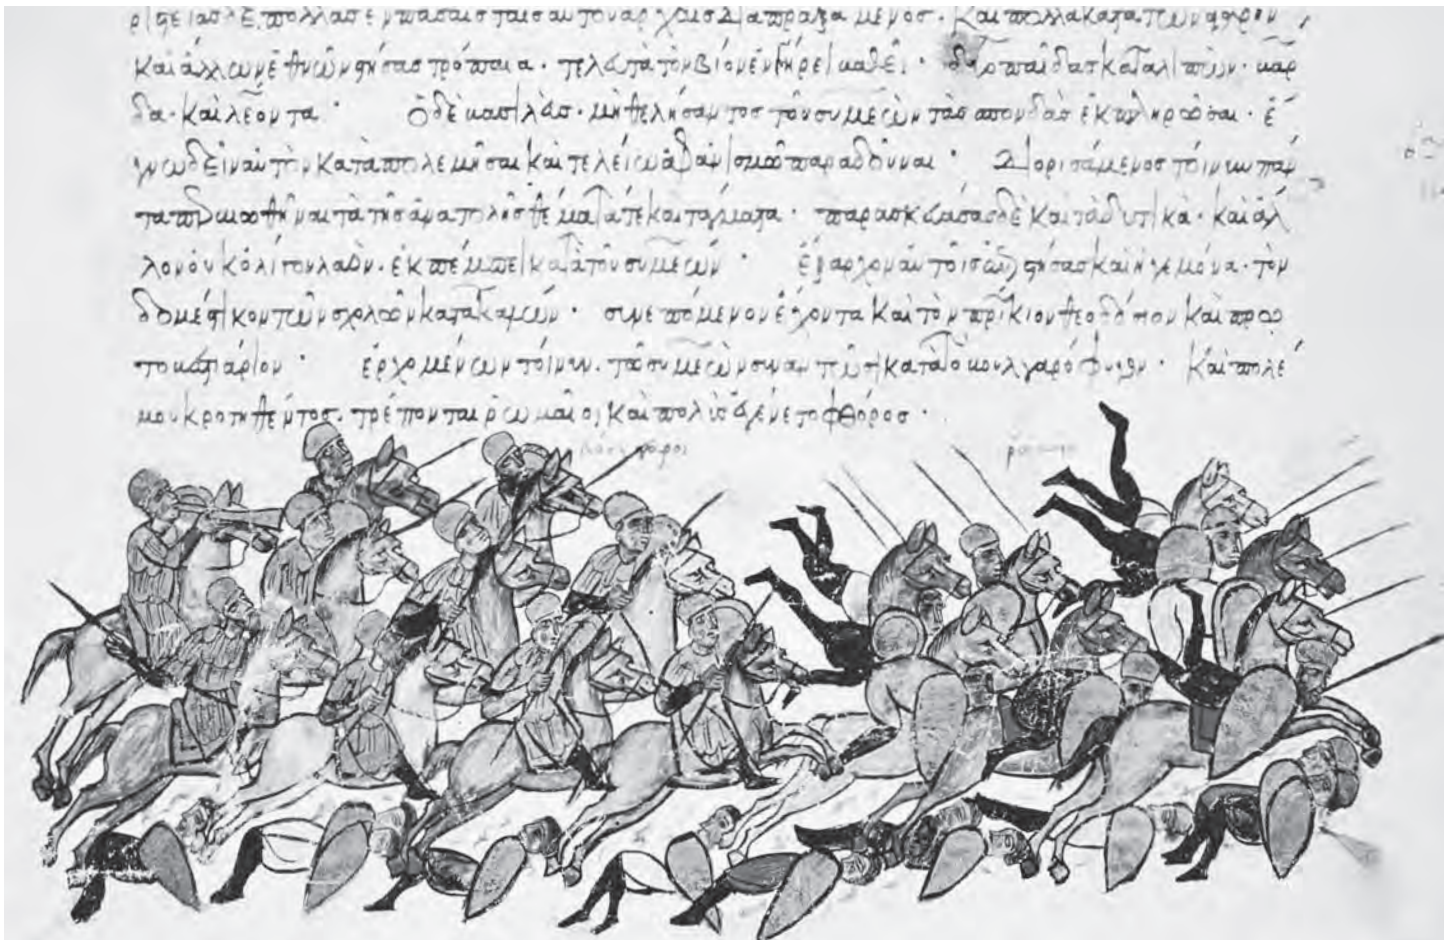 πολλὰς ἐν πάσαις ταῖς αὐτοῦ ἀρχαῖς διαπραξάμενος · καὶ πολλὰ κατὰ τῶν ἀγαρην
καὶ ἄλλων ἐθνῶν στήσας τρόπαια · τελευτᾶ τὸν βίον ἐν γήρει · δύο παῖδας καταλιπών · βάρ
δα · καὶ λέοντα · Ὁ δὲ βασιλεὺς · μὴ θελήσαντος τοῦ συμεὼν τὰς σπονδὰς ἐκπληρῶσαι · ἔ
γνω δεῖν αὐτὸν καταπολεμῆσαι καὶ τελείω ἀφανισμῶ παραδοῦναι · Διορισάμενος τοίνυν πάν
τα τὰ τῆς ἀνατολῆς θέματα τὲ καὶ τάγματα · παρασκευάσας δὲ καὶ τὰ δυτικὰ · καὶ ἄλ
λον οὐκ ὀλίγον λαὸν · ἐκπέμπει κατὰ τοῦ συμεών · ἔξαρχον αὐτοῖς καὶ ἡγεμόνα · τὸν
δομέστικον τῶν σχολῶν κατακαλών · συνεπόμενον ἔχοντα καὶ τὸν πρίκιον θεοδόσιον καὶ πρω
τοβεστιάριον · ἐρχομένων τοίνυν · τῶ συμεὼν συναντῶσι κατὰ τὸ βουλγαρόφυγον · καὶ πολέ
μου κροτηθέντος · τρέπονται ῥωμαῖοι καὶ πολὺς ἐγένετο φθόρος ·